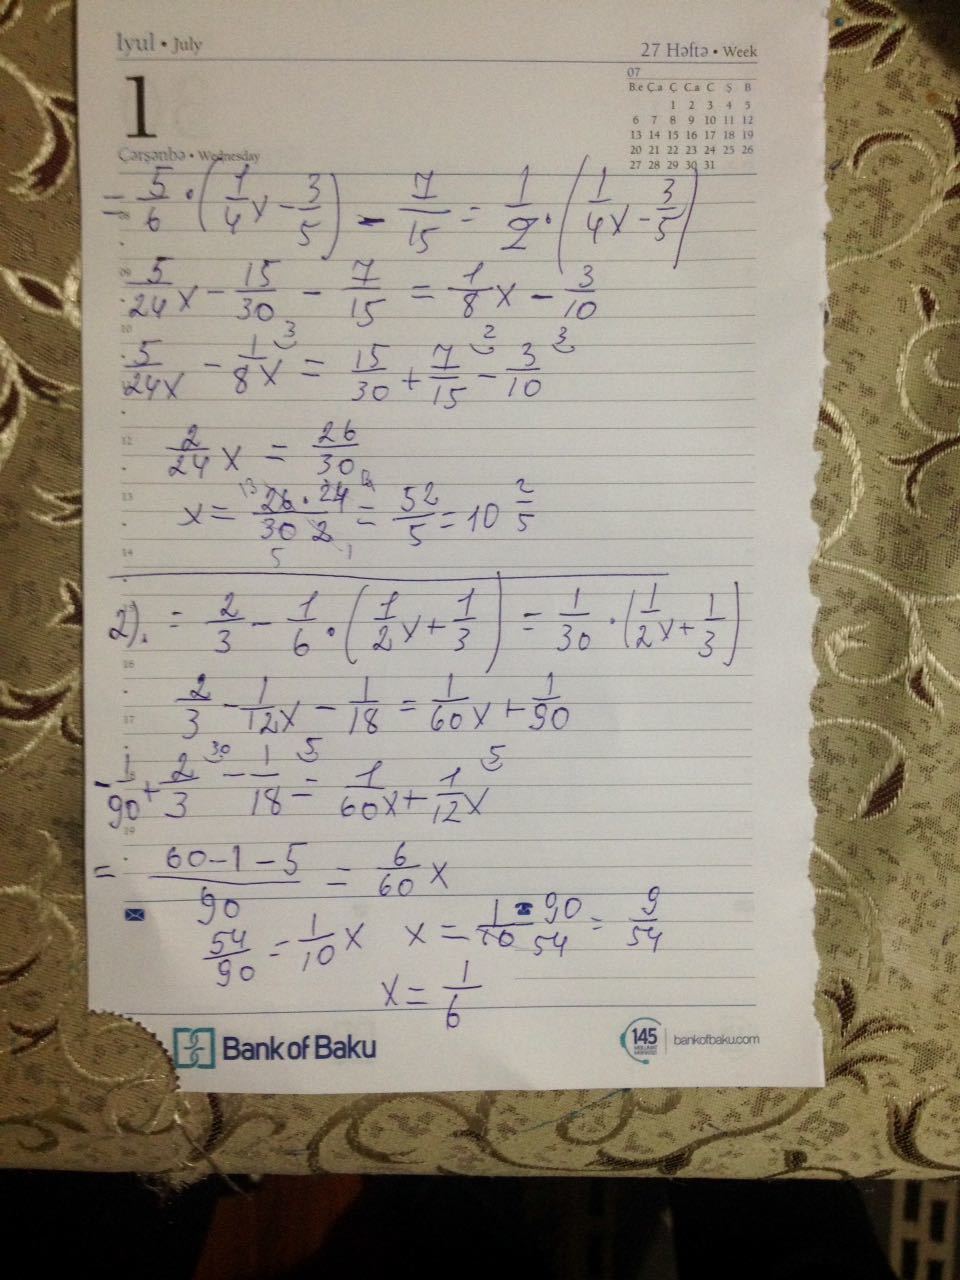 İyul • July
27 Həftə • Week
1
Çərşənbə • Wednesday
07
B.e Ç.a Ç C.a C Ş B
1 2 3 4 5
6 7 8 9 10 11 12
13 14 15 16 17 18 19
20 21 22 23 24 25 26
27 28 29 30 31
= 5/6 · (1/4 x - 3/5) - 7/15 = 1/2 · (1/4 x - 3/5)
09
5/24 x - 15/30 - 7/15 = 1/8 x - 3/10
10
5/24 x - 1/8 x 3 = 15/30 + 7/15 2 - 3/10 3
12
2/24 x = 26/30
13
x = 26 · 24 / 30 2 = 52/5 = 10 2/5
13 5 1
14
2). = 2/3 - 1/6 · (1/2 x + 1/3) = 1/30 · (1/2 x + 1/3)
16
2/3 - 1/12 x - 1/18 = 1/60 x + 1/90
17
- 1/90 + 2/3 30 - 1/18 5 = 1/60 x + 1/12 x 5
19
= 60-1-5 / 90 = 6/60 x
54/90 = 1/10 x x = 1/10 90/54 = 9/54
x = 1/6
Bank of Baku
145
MƏLUMAT MƏRKƏZİ
bankofbaku.com